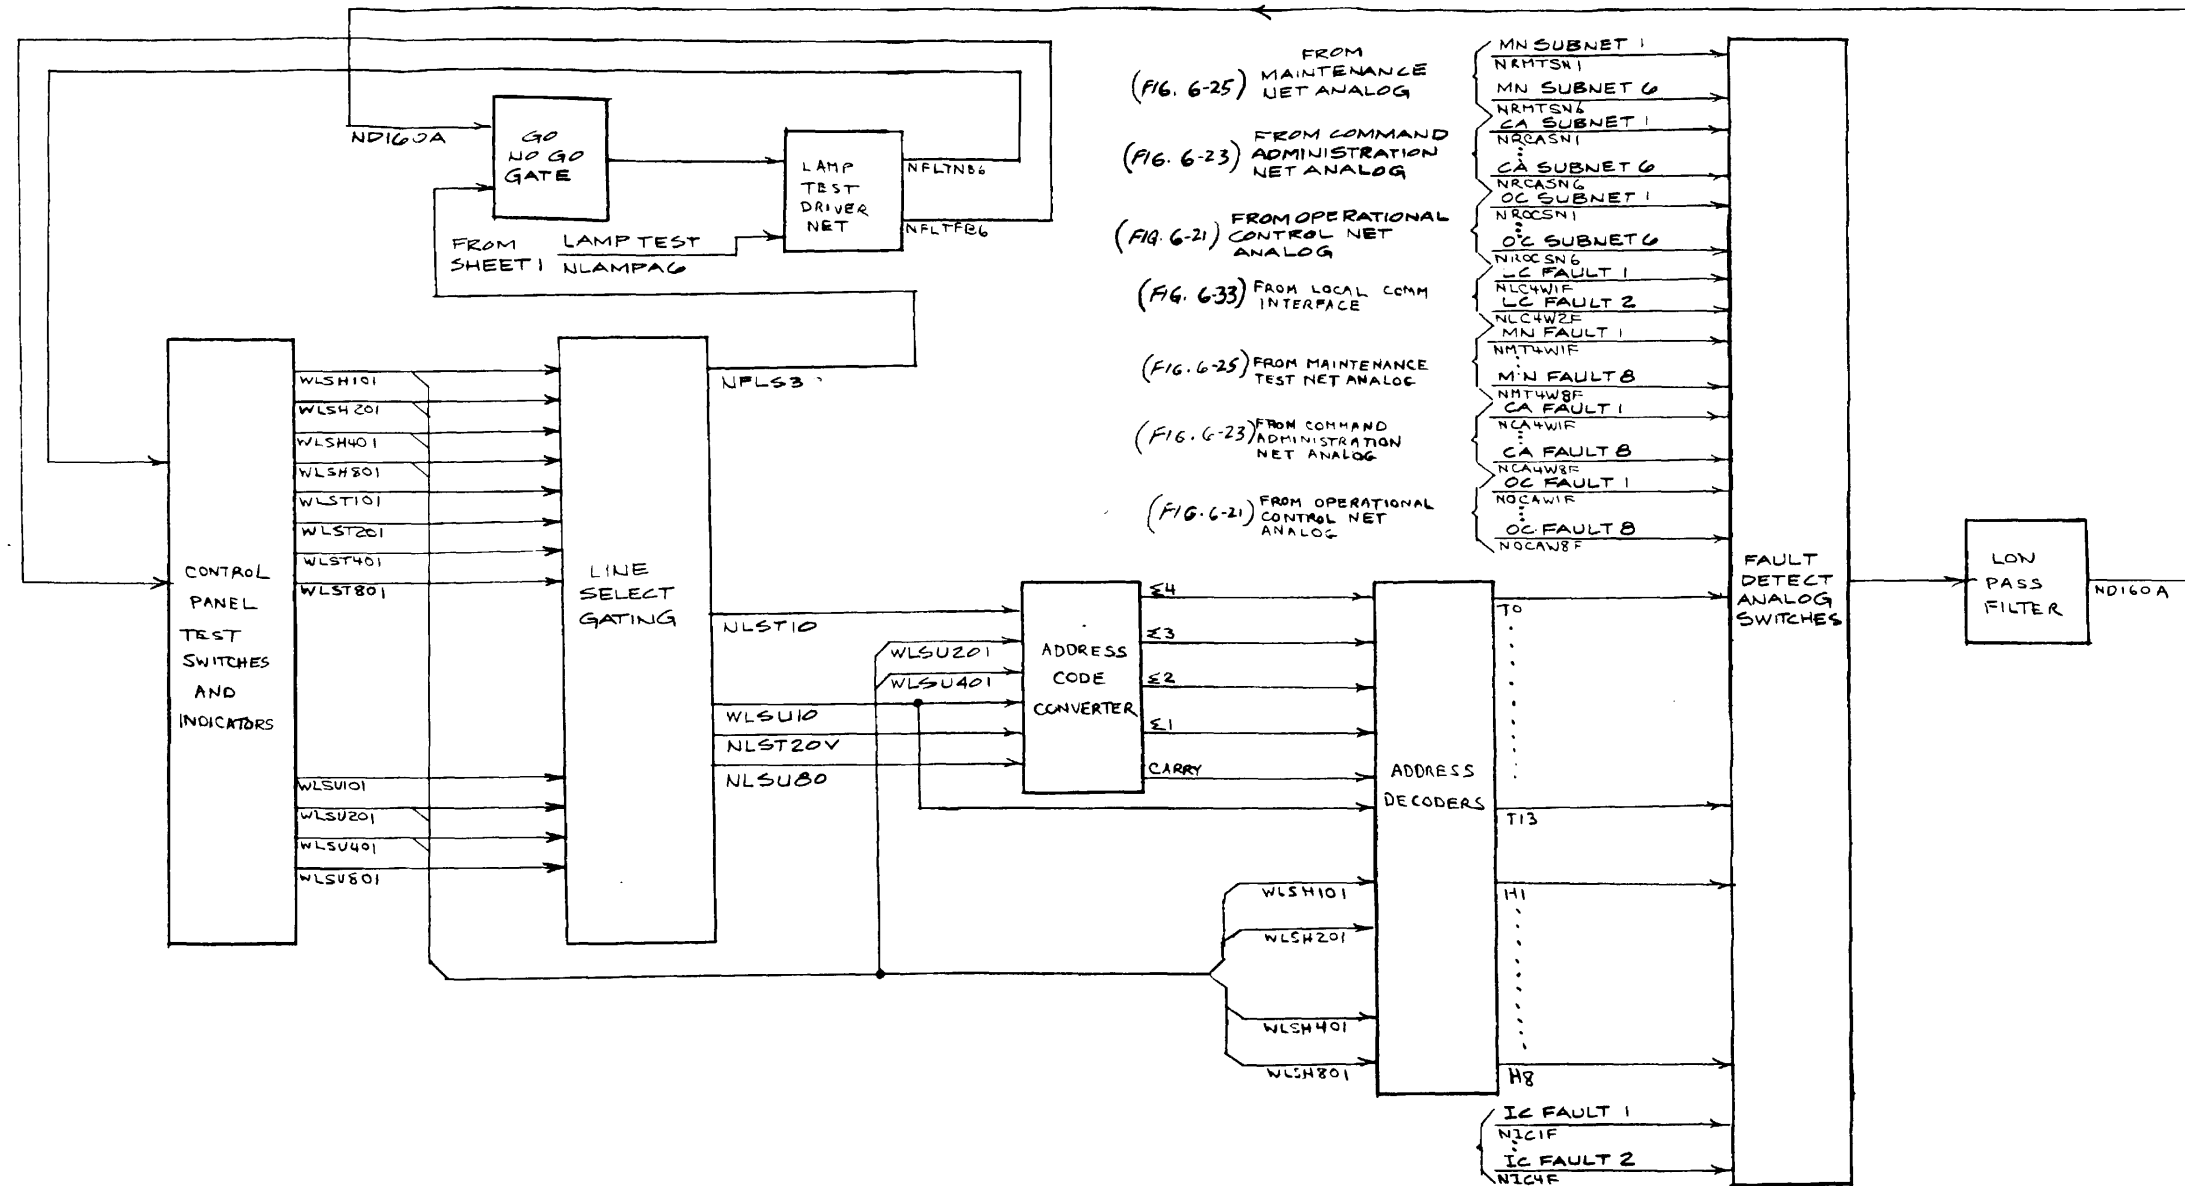 ND160A
GO
NO GO
GATE
LAMP
TEST
DRIVER
NET
NFLTNB6
NFLTFB6
FROM
SHEET 1
LAMP TEST
NLAMPA6
CONTROL
PANEL
TEST
SWITCHES
AND
INDICATORS
WLSH101
WLSH201
WLSH401
WLSH801
WLST101
WLST201
WLST401
WLST801
WLSU101
WLSU201
WLSU401
WLSU801
LINE
SELECT
GATING
NFLS3
NLST10
WLSU201
WLSU401
WLSU10
NLST20V
NLSU80
ADDRESS
CODE
CONVERTER
Σ4
Σ3
Σ2
Σ1
CARRY
WLSH101
WLSH201
WLSH401
WLSH801
ADDRESS
DECODERS
T0
T13
H1
H8
(FIG. 6-25)
FROM
MAINTENANCE
NET ANALOG
(FIG. 6-23)
FROM COMMAND
ADMINISTRATION
NET ANALOG
(FIG. 6-21)
FROM OPERATIONAL
CONTROL NET
ANALOG
(FIG. 6-33)
FROM LOCAL COMM
INTERFACE
(FIG. 6-25)
FROM MAINTENANCE
TEST NET ANALOG
(FIG. 6-23)
FROM COMMAND
ADMINISTRATION
NET ANALOG
(FIG. 6-21)
FROM OPERATIONAL
CONTROL NET
ANALOG
MN SUBNET 1
NRMTSN1
MN SUBNET 6
NRMTSN6
CA SUBNET 1
NRCASN1
CA SUBNET 6
NRCASN6
OC SUBNET 1
NROCSN1
OC SUBNET 6
NROCSN6
LC FAULT 1
NLC4W1F
LC FAULT 2
NLC4W2F
MN FAULT 1
NMT4W1F
MN FAULT 8
NMT4W8F
CA FAULT 1
NCA4W1F
CA FAULT 8
NCA4W8F
OC FAULT 1
NOCAW1F
OC FAULT 8
NOCAW8F
IC FAULT 1
NIC1F
IC FAULT 2
NIC4F
FAULT
DETECT
ANALOG
SWITCHES
LOW
PASS
FILTER
ND160A